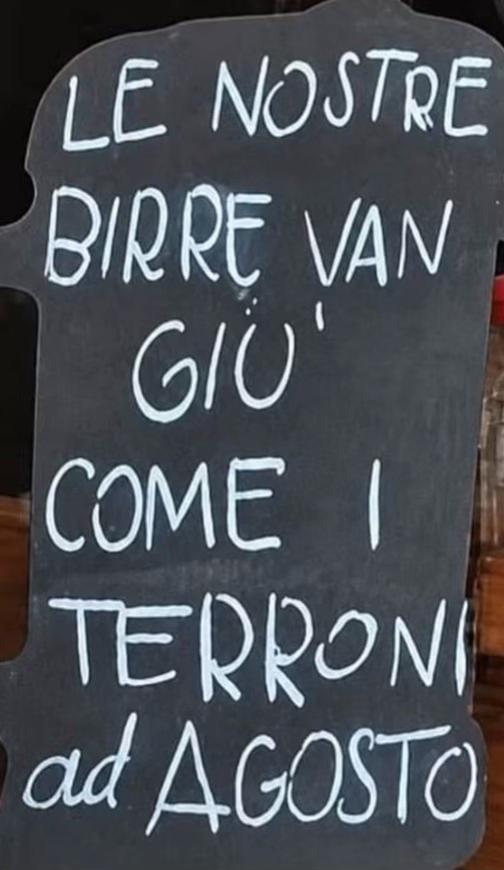 LE NOSTRE
BIRRE VAN
GIÙ'
COME I
TERRONI
ad AGOSTO